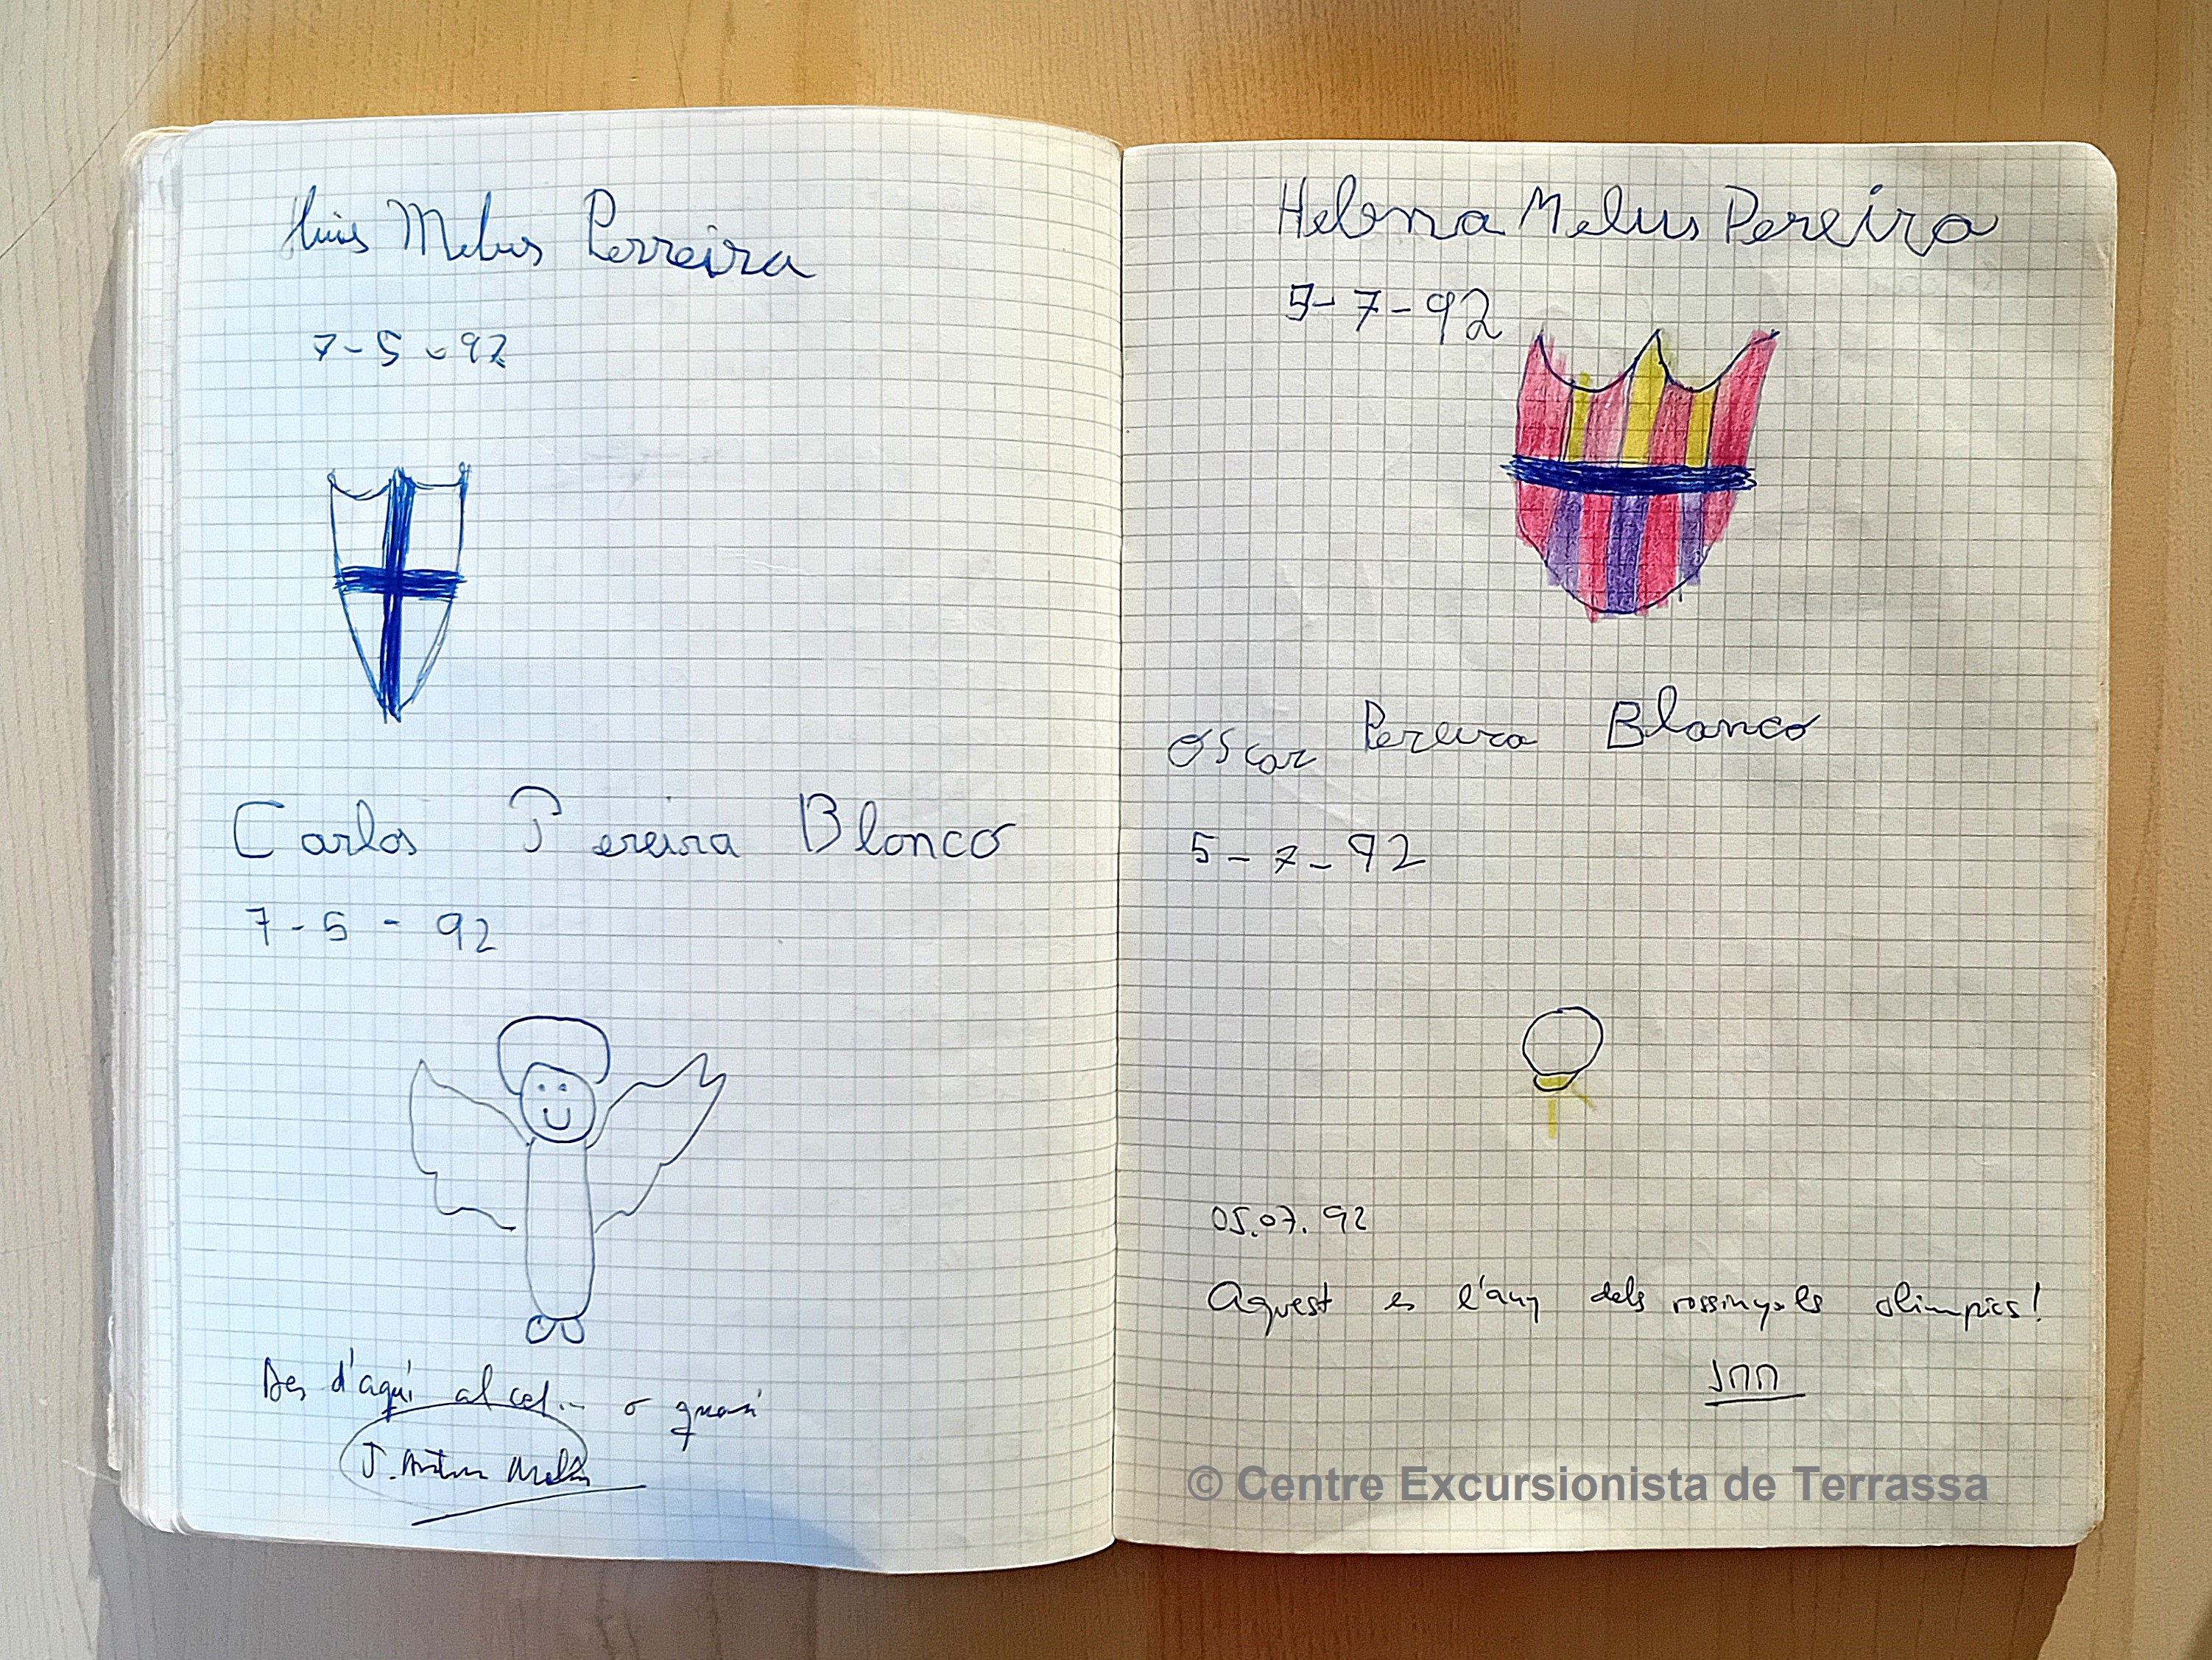 Lluis Melus Perreira
7-5-92
Carlos Pereira Blanco
7-5-92
Des d'aquí al cel... o quasi
J. Antón Melús
Helena Melus Pereira
5-7-92
Oscar Pereira Blanco
5-7-92
05.07.92
Aquest es l'any dels rossinyols olimpics!
© Centre Excursionista de Terrassa